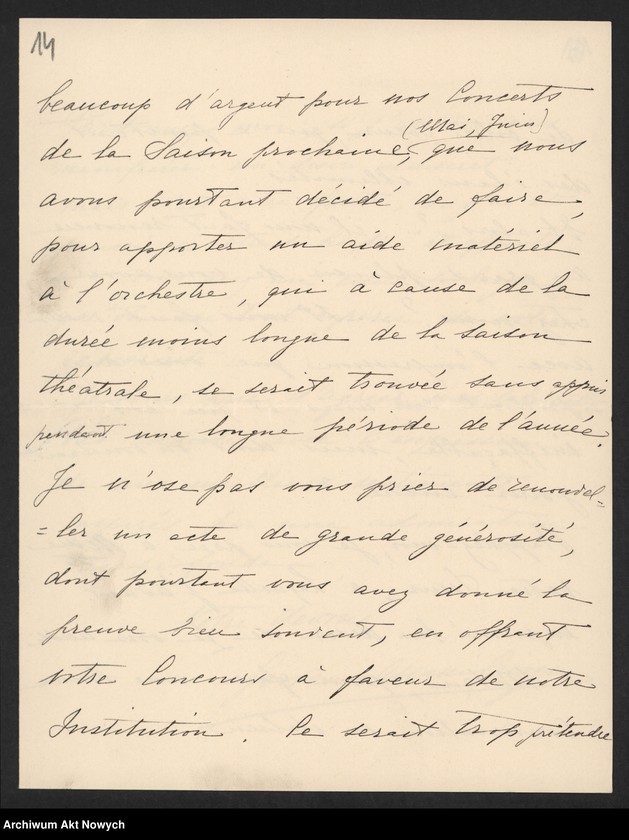 14
beaucoup d'argent pour nos Concerts
(Mai, Juin)
de la Saison prochaine, que nous
avons pourtant décidé de faire,
pour apporter un aide matériel
à l'orchestre, qui à cause de la
durée moins longue de la saison
théatrale, se serait trouvée sans appui
pendant une longue période de l'année.
Je n'ose pas vous prier de renouvel=
=ler un acte de grande générosité,
dont pourtant vous avez donné la
preuve bien souvent, en offrant
votre Concours à faveur de notre
Institution. Ce serait trop prétendre
Archiwum Akt Nowych